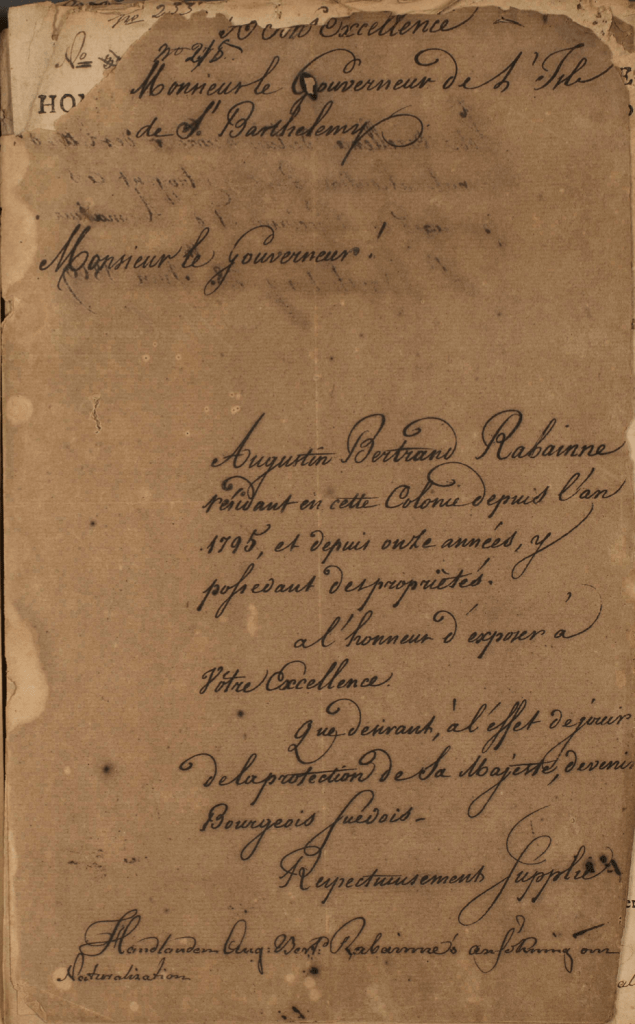 no 233
A Son Excellence
No no 215.
Monsieur le Gouverneur de L'Isle
HO
de St Barthelemy
Monsieur le Gouverneur!
Augustin Bertrand Rabainne
résidant en cette Colonie depuis l'an
1795, et depuis onze années, y
possedant des proprïetés.
a l'honneur d'éxposer à
Votre Excellence.
Que desirant, à l'éffet de jouir
de la protection de Sa Majesté, devenir
Bourgeois Suédois -
Respectueusement Supplie
Handlanden Aug: Bert: Rabainne's ansökning om
Naturalization